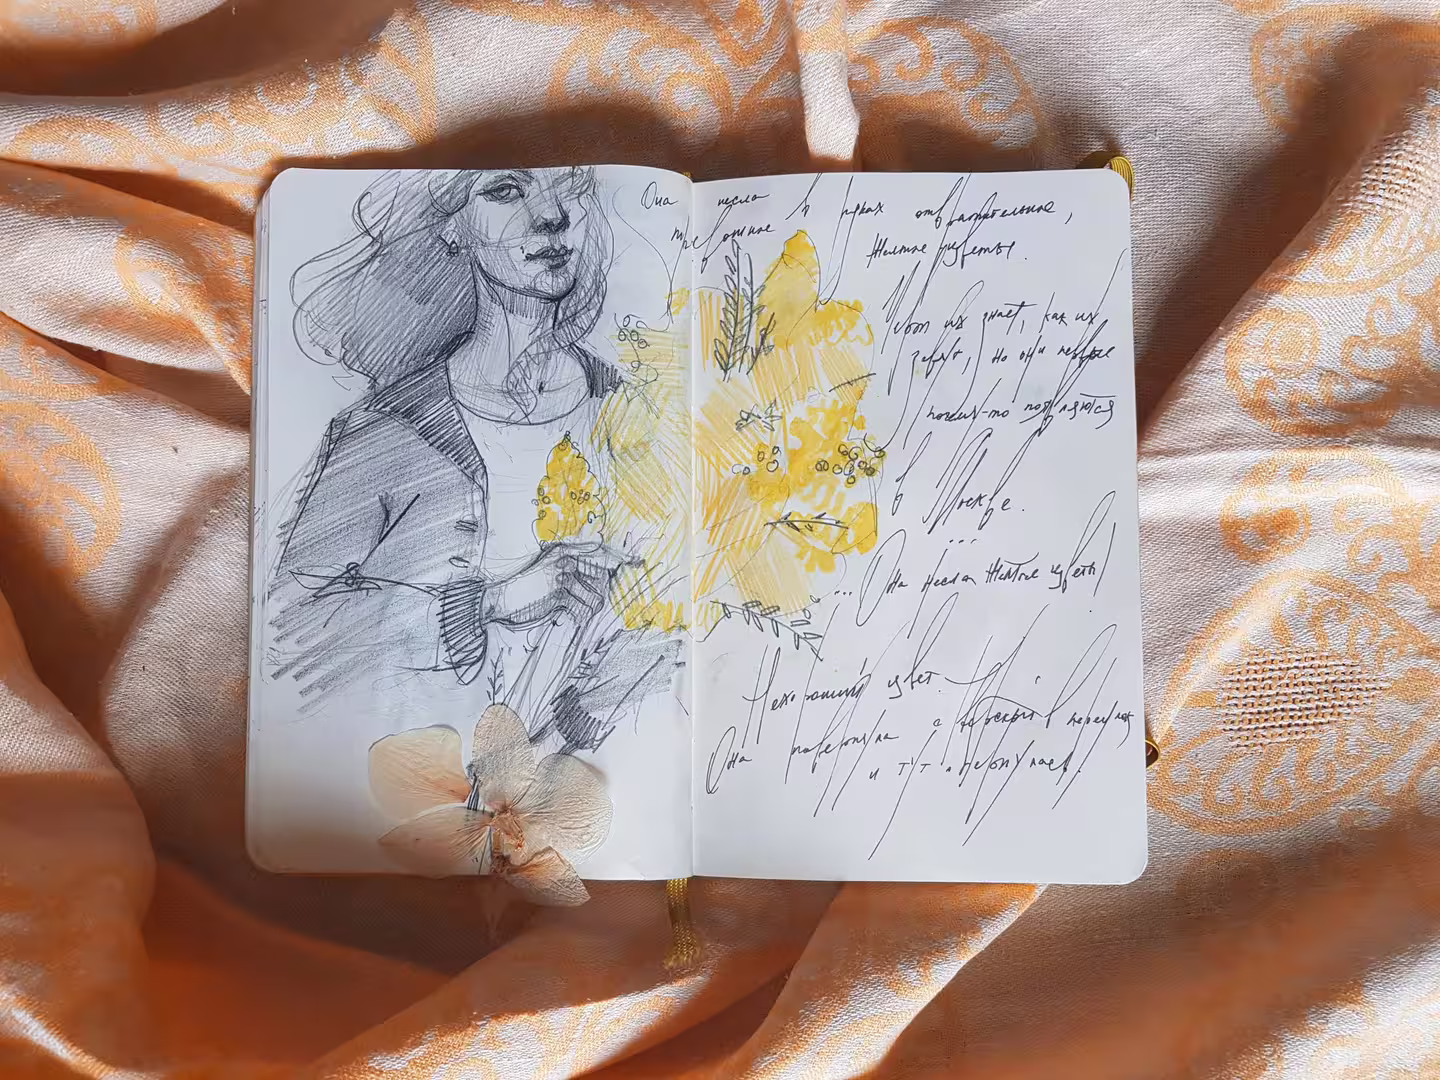 Она несла в руках отвратительные,
тревожные желтые цветы.
Черт их знает, как их
зовут, но они первые
почему-то появляются
в Москве.
...
... Она несла желтые цветы!
Нехороший цвет.
Она повернула с Тверской в переулок
и тут обернулась.